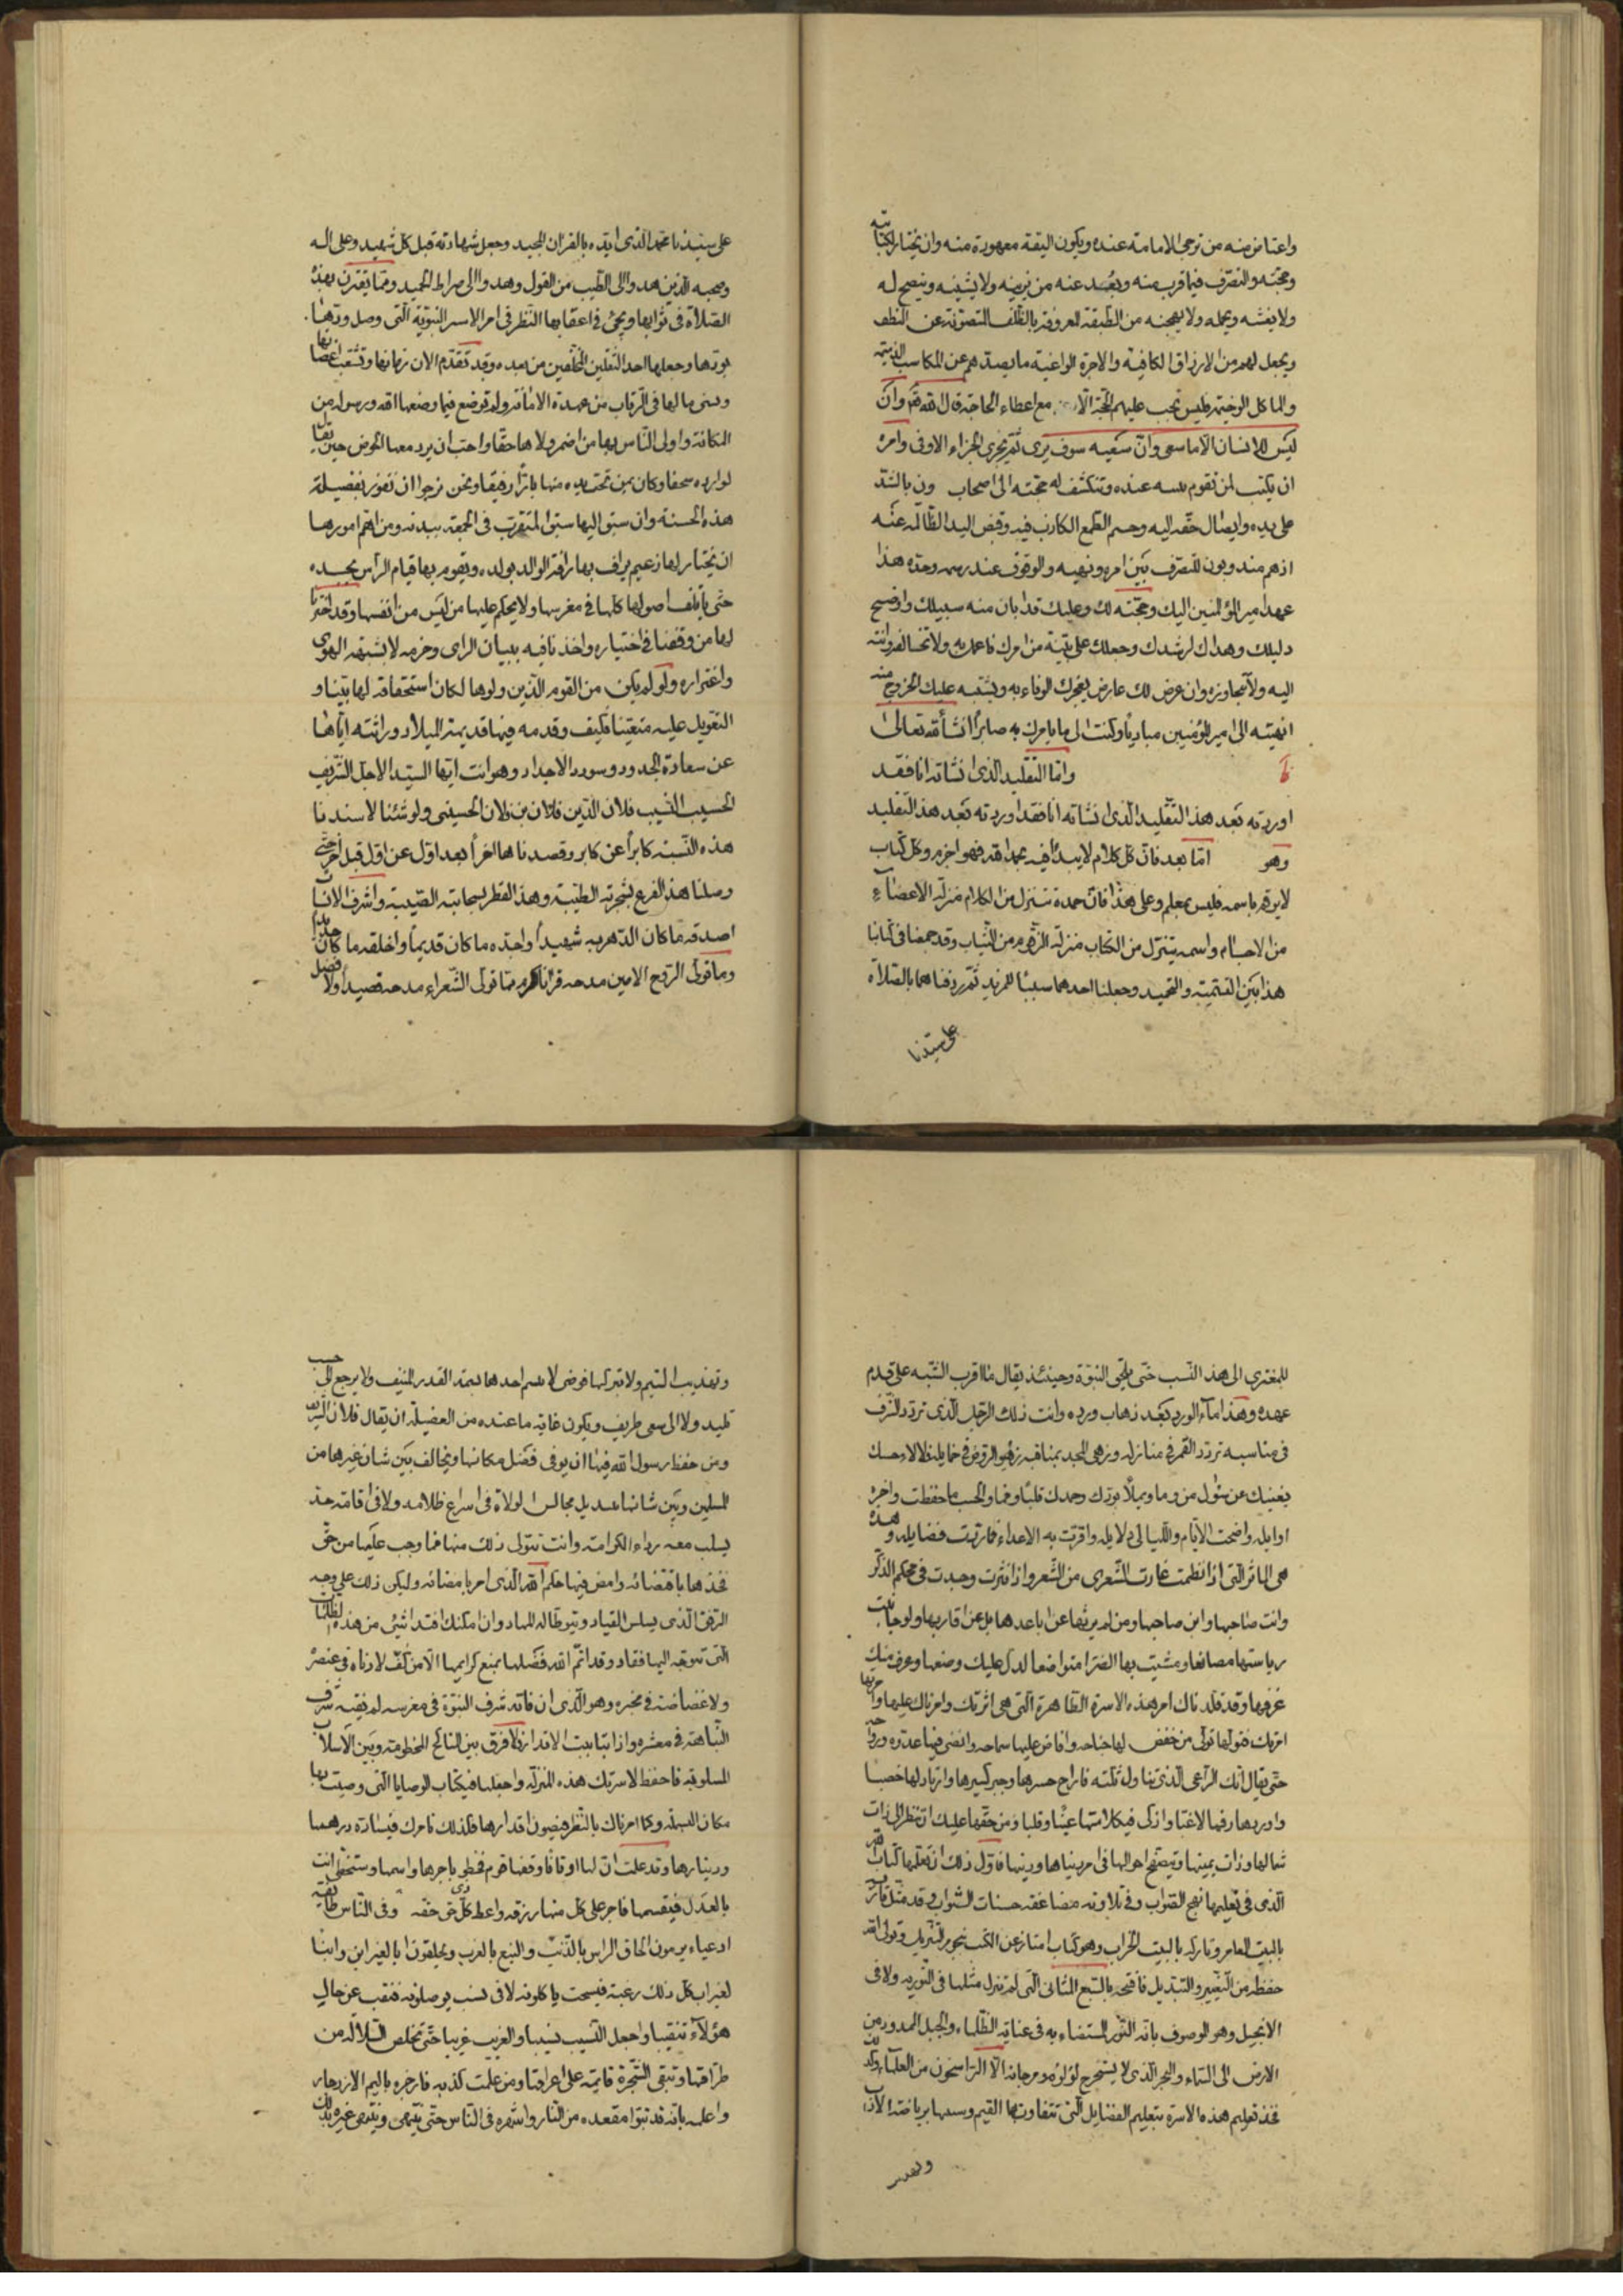 واعتاض منه من ترجى الامامة عنده ويكون الثقة معهودة منه وان يختار لكتابته
وحجبته والتصرف فيما قرب منه وبعد عنه من يزينه ولا يشينه وينصح له
ولا يغشه ويجمله ولا يهجنه من الطبقة المعروفة بالظلف المتصونة عن النطف
ويجعل لهم من الارزاق الكافية والاجرة الواغية ما يصدهم عن المكاسب الذميمة
والماكل الوخيمة فليس تجب عليهم الحجة الا مع اعطاء الحاجة قال الله تعالى وان
ليس للانسان الا ما سعى وان سعيه سوف يرى ثم يجزى الجزاء الاوفى وامره
ان يكتب لمن تقوم بينته عنده وتنكشف له حجته الى اصحاب ون بالشد
على يده وايصال حقه اليه وحسم الطمع الكاذب فيه وقبض اليد الظالمة عنه
اذ هم مندوبون للتصرف بين امره ونهيه والوقوف عند رسمه وحده هذا
عهد امير المؤمنين اليك وحجته لك وعليك قد ابان منه سبيلك واوضح
دليلك وهداك لرشدك وجعلك على بينة من امرك فاعمل به ولا تخالفه وانته
اليه ولا تجاوزه وان عرض لك عارض يعجزك الوفاء به ويشتبه عليك الخروج منه
انهيته الى امير المؤمنين مبادرا وكنت الى ما يامرك به صابرا انشأ الله تعالى
واما التقليد الذى انشاته انا فقد
اوردته بعد هذا التقليد الذى انشاته انا فقد اوردته بعد هذا التقليد
وهو اما بعد فان كل كلام لا يبدأ فيه بحمد الله فهو اجزم وكل كتاب
لا يرقم باسمه فليس بمعلم وعلى هذا فان حمده تتنزل من الكلام منزلة الاعضاء
من الاجسام واسمه يتنزل من الكتاب منزلة الرقوم من الثياب وقد جمعنا فى كتابنا
هذا بين التسمية والتحميد وجعلنا احدهما سببا للمزيد ثم ردفناهما بالصلاة
على سيدنا
على سيدنا محمد الذى ايده بالقران المجيد وجعل شهادته قبل كل شهيد وعلى اله
وصحبه الذين هدوا الى الطيب من القول وهدوا الى صراط الحميد ومما يقترن بهذه
الصلاة فى ثوابها ويجئ فى اعقابها النظر فى امر الاسرة النبوية التى وصل ودها
بودها وجعلها احد الثقلين المخلفين من بعده وقد تقدم الان زمانها وتشعب اغصانها
ونسى ما لها فى الرقاب من عهدة الامانة ولم توضع فيما وضعها الله ورسوله من
المكانة واولى الناس بها من اضمر ولاها حقا واحب ان يرد معها الحوض حين يقال
لوارده سحقا وكان بمن تحت يده منها بارا رفيقا ونحن نرجوا ان نفوز بفضيلة
هذه الحسنة وان سبق اليها سبق المتقرب فى الجمعة ببدنه ومن اهم امورها
ان يختار لها زعيم يراف بها رافة الوالد بولده ويقوم بها قيام الراس بجسده
حتى يأتلف اصولها كلها فى مغرسها ولا يحكم عليها من ليس من انفسها وقد اخترنا
لها من وقفنا فى اختياره واخذنا فيه ببيان الراى وحزمه لا بشبهة الهوى
واغتراره ولو لم يكن من القوم الذين ولوها لكان استحقاقه لها بينا و
التعويل عليه متعينا فكيف وقدمه فيها قديمة الميلاد وراثته اياها
عن سعادة الجدود وسودد الاجداد وهو انت ايها السيد الاجل الشريف
الحسيب النسيب فلان الدين فلان بن فلان الحسينى ولو شئنا لاسندنا
هذه النسبة كابرا عن كابر وقصدناها اخرا بعد اول عن اول قبل اخر حتى
وصلنا هذا الفرع بشجرته الطيبة وهذا القطر بسحابته الصيبة واشرف الانساب
اصدقه ما كان الدهر به شهيدا واجده ما كان قديما واخلقه ما كان جديدا
وما تولى الروح الامين مدحه قرانا اكرم مما تولى الشعراء مدحه قصيدا ولا فضل
للمغترى الى هذا النسب حتى يلتحى النبوة وحينئذ يقال ما اقرب الشبه على قدم
عهده وهذا ماء الورد بعد ذهاب ورده وانت ذلك الرجل الذى تردد الشرف
فى مناسبه تردد القمر فى منازله وزهى المجد بمناقبه زهو الروض فى خمايله
اوايله واضحت الايام والليالى دلايله واقرت به الاعداء فضايله وهذه
هى الماثر التى اذا نظمت غارت الشعرى من الشعر واذا نثرت وجدت فى محكم الذكر
وانت صاحبها وابن صاحبها ومن لم يرثها عن اباعدها بل عن اقاربها ولو جانبت
رياستها مصانعا ومشيت بها الضرا متواضعا لدل عليك وضعها وعرف منك
عرفها وقد قلدناك امر هذه الاسرة الظاهرة التى هى اثرتك وامرناك عليها
امرتك فتولها تولى من خفض لها جناحه وافاض عليها سماحه
حتى يقال انك الراعى الذى تناول ثلته فاراح حسرها وجبر كسيرها وارتاد لها خصبا
واوردها رفها لا غبا واذكى فى كلاءتها عينا وقلبا ومن حقها عليك ان تنظر الى ذات
شمالها وذات يمينها وتتصفح احوالها فى امر دنياها ودينها فاول ذلك ان تعلمها كتاب الله
الذى فى تعليمها نهج الصواب وفى تلاوته مضاعفة حسنات الثواب وقد مثل قارئه
بالبيت العامر وتاركه بالبيت الخراب وهو كتاب امتاز عن الكتب بنجوم التنزيل وتولى الله
حفظه من التغيير والتبديل فافتتحه بالسبع المثانى التى لم تنزل مثلها فى التوريه ولا فى
الانجيل وهو الموصوف بانه النور المستضاء به فى غيابة الظلماء والحبل الممدود من
الارض الى السماء والبحر الذى لا يستخرج لؤلؤه ومرجانه الا الراسخون من العلماء
فخذ تعليم هذه الاسرة بتعليم الفضايل التى تتفاوت بها القيم وسسها برياضة الآداب
وتهذيب
وتهذيب الشيم ولا تتركها فوضى لا يتسم احدها بسمة القدر المنيف ولا يرجع الى حسب
تليد ولا الى سعى طريف ويكون غاية ما عنده من الفضيلة ان يقال فلان الشريف
ومن حفظ رسول الله فيها ان يوفى فضل مكانها ويخالف بين شان غيرها من
المسلمين وبين شانها بتبديل مجالس الولاة فى اسراع ظلامه ولا فى اقامة حد
يسلب معه رداء الكرامة وانت تتولى ذلك منها فما وجب عليها من حق
فخذها باقتضائه وامض فيها حكم الله الذى امر بامضائه وليكن ذلك على وجه
الرفق الذى يسلس القياد ويتوطا له المهاد وان امكنك افتداء شئ من هذه الظلامات
التى تتوجه اليها فقاد وقد اتم الله فضلها بمنع كرايمها الا من كفء لا دناءة فى عنصره
ولا غضاضة فى مخبره وهو الذى ان فاته شرف النبوة فى مغرسه لم يفته شرف
النباهة فى معشره واذا تباينت الاقدار فلا فرق بين المناكح المخطومة وبين الاسلاب
المسلوبة فاحفظ لاسرتك هذه المنزلة واجعلها فى كتاب الوصايا التى وصيت بها
مكان البسملة وكما امرناك بالنظر فى صون اقدارها فكذلك نامرك فى مادة درهمها
ودينارها وقد علمت ان لها اوقافا وقفها قوم فحظوا باجرها واسمها وستحظى انت
بالعدل فى قسمها فاجر على كل منها رزقه واعط كل ذى حق حقه وفى الناس طايفة
ادعياء يرومون الحاق الراس بالذنب والنبع بالغرب ويلحقون ابا لغير ابن وابنا
لغير اب كل ذلك رغبة فى سحت ياكلونه لا فى نسب يوصلونه فنقب عن حال
هؤلاء تنقيبا واجعل النسيب نسيبا والغريب غريبا حتى تخلص السلالة من
طراقها وتبقى الشجرة قايمة على اعراقها ومن علمت كذبه فازجره باليم الازدجار
واعلمه بانه قد تبوا مقعده من النار واشهره فى الناس حتى ينتهى ويتعظ غيره بذلك